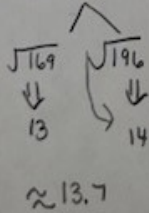 √169 √196
⇓ ⇓
13 14
≈ 13.7